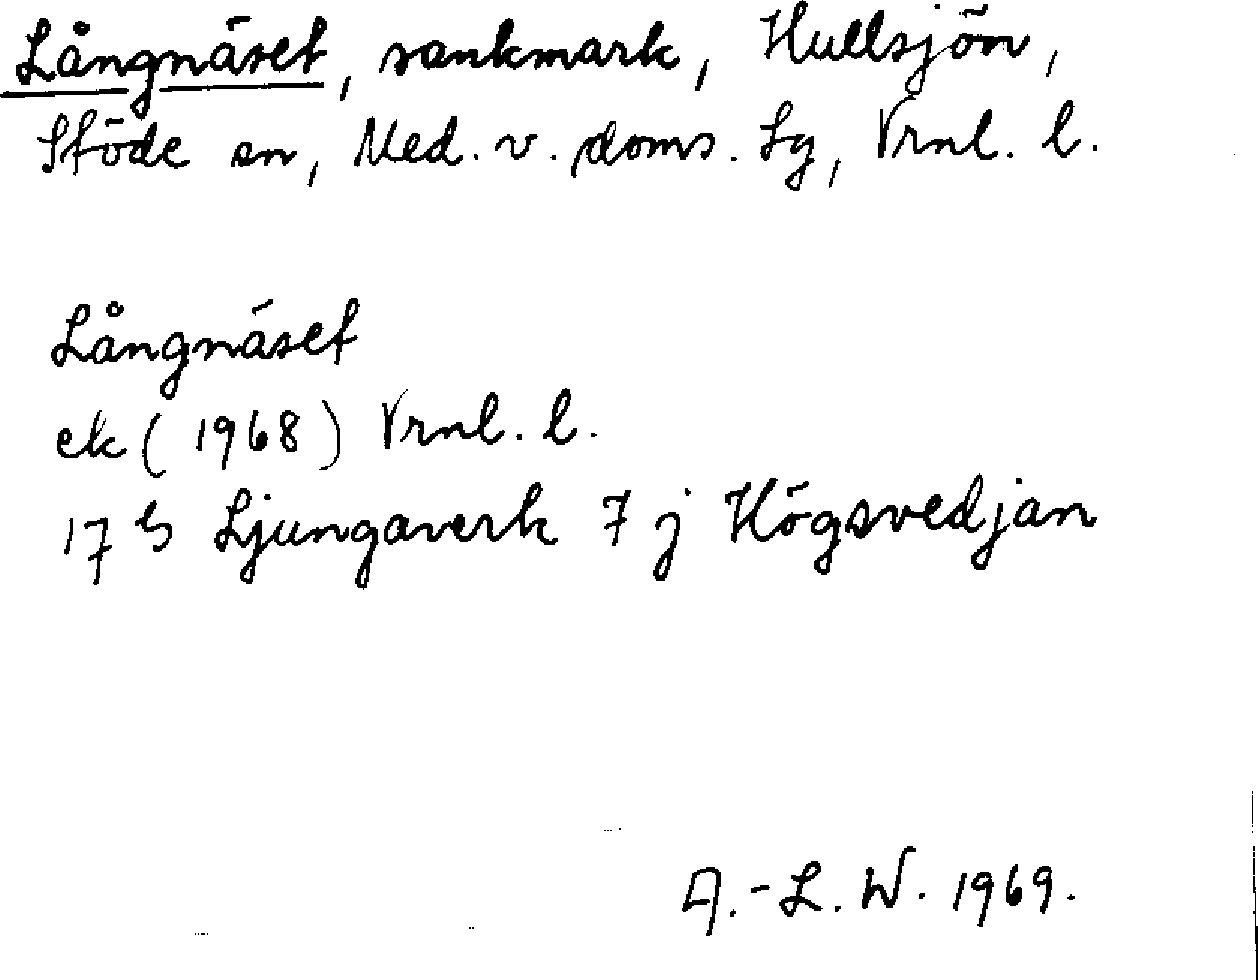 Långnäset, sankmark, Hullsjön,
Stöde sn, Med. v. doms. lg, Vrnl. l.
Långnäset
ek (1968) Vrnl. l.
17 G Ljungaverk 7 j Högsvedjan
A.-L. W. 1969.